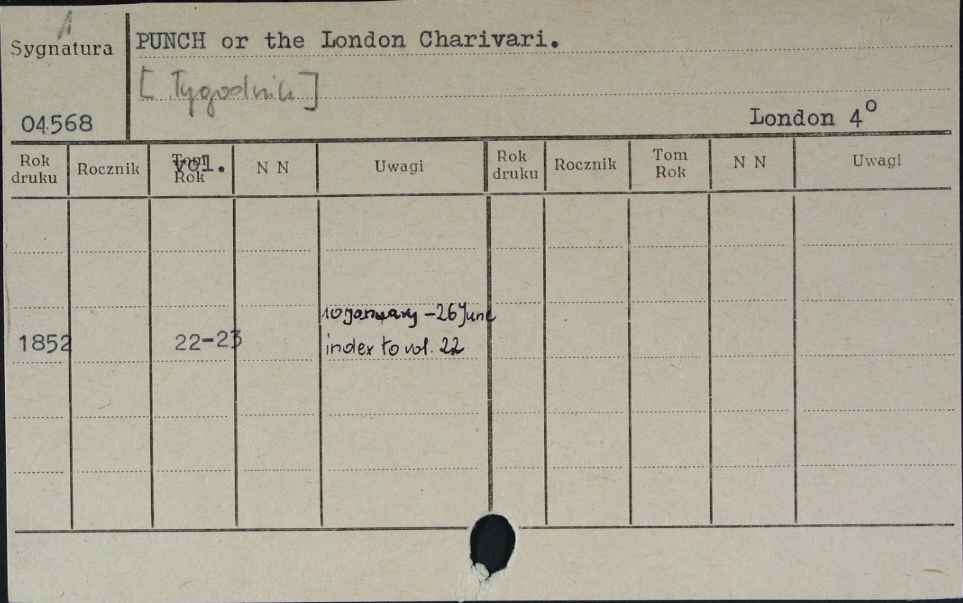 Sygnatura
PUNCH or the London Charivari.
[Tygodnik]
04568
London 4°
Rok druku Rocznik Tom Rok vol. N N Uwagi Rok druku Rocznik Tom Rok N N Uwagi
10 january – 26 June
1852 22-23 index to vol. 22